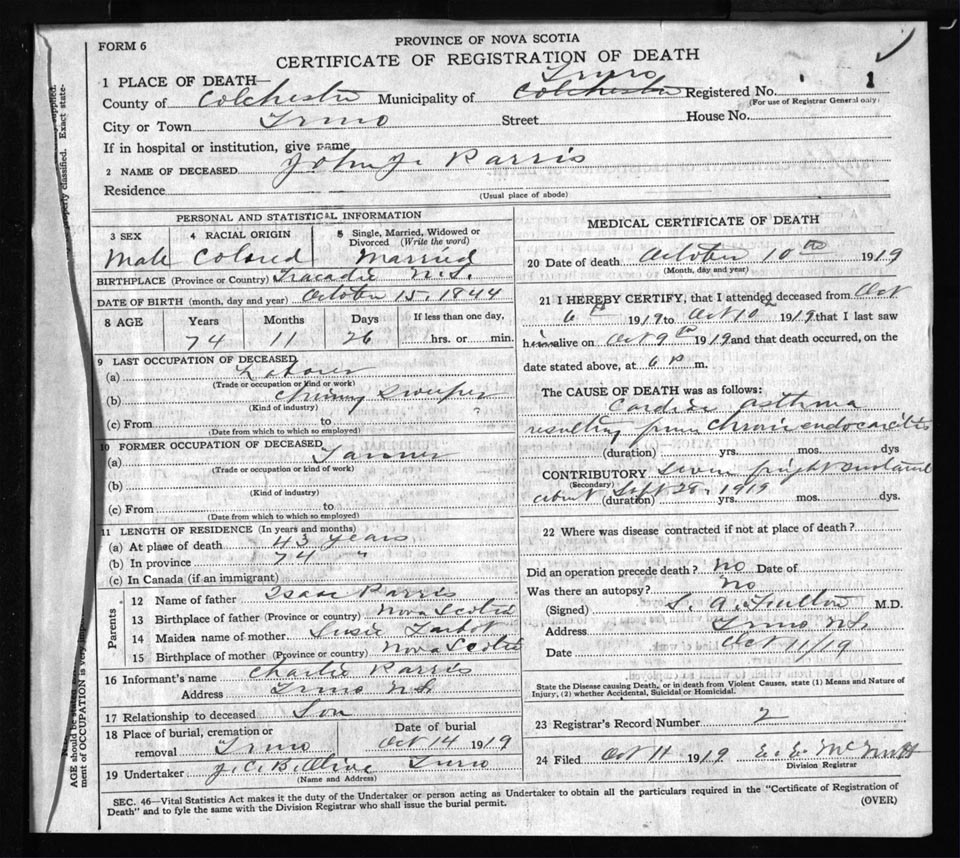 FORM 6
PROVINCE OF NOVA SCOTIA
CERTIFICATE OF REGISTRATION OF DEATH
1 PLACE OF DEATH—
Truro
County of Colchester Municipality of Colchester Registered No. 1
(For use of Registrar General only)
City or Town Truro Street House No.
If in hospital or institution, give name
2 NAME OF DECEASED John J. Parris
Residence
(Usual place of abode)
PERSONAL AND STATISTICAL INFORMATION
3 SEX 4 RACIAL ORIGIN 5 Single, Married, Widowed or Divorced (Write the word)
Male Colored Married
BIRTHPLACE (Province or Country) Tracadie N.S.
DATE OF BIRTH (month, day and year) October 15, 1844
8 AGE Years Months Days If less than one day,
74 11 26 hrs. or min.
9 LAST OCCUPATION OF DECEASED
(a) Laborer
(Trade or occupation or kind or work)
(b) Chimney Sweeper
(Kind of industry)
(c) From to
(Date from which to which so employed)
10 FORMER OCCUPATION OF DECEASED
(a) Tanner
(Trade or occupation or kind of work)
(b)
(Kind of industry)
(c) From to
(Date from which to which so employed)
11 LENGTH OF RESIDENCE (In years and months)
(a) At place of death 43 years
(b) In province 74 "
(c) In Canada (if an immigrant)
Parents
12 Name of father Isaac Parris
13 Birthplace of father (Province or country) Nova Scotia
14 Maiden name of mother Susie
15 Birthplace of mother (Province or country) Nova Scotia
16 Informant's name Charlie Parris
Address Truro N.S.
17 Relationship to deceased Son
18 Place of burial, cremation or Date of burial
removal Truro Oct 14 1919
19 Undertaker Truro
(Name and Address)
MEDICAL CERTIFICATE OF DEATH
20 Date of death October 10th 1919
(Month, day and year)
21 I HEREBY CERTIFY, that I attended deceased from Oct
6th 1919 to Oct 10th 1919 that I last saw
h alive on Oct 9th 1919 and that death occurred, on the
date stated above, at 6 P m.
The CAUSE OF DEATH was as follows:
Cardiac asthma
resulting from chronic endocarditis
(duration) yrs. mos. days
CONTRIBUTORY severe fright sustained
(Secondary)
about Sept 28, 1919 (duration) yrs. mos. dys.
22 Where was disease contracted if not at place of death?
Did an operation precede death? No Date of
Was there an autopsy? No
(Signed) S. A. Fulton M.D.
Address Truro N.S.
Date Oct 11/19
State the Disease causing Death, or in death from Violent Causes, state (1) Means and Nature of
Injury, (2) whether Accidental, Suicidal or Homicidal.
23 Registrar's Record Number 2
24 Filed Oct 11 1919 E. E. McNutt
Division Registrar
SEC. 46—Vital Statistics Act makes it the duty of the Undertaker or person acting as Undertaker to obtain all the particulars required in the "Certificate of Registration of
Death" and to fyle the same with the Division Registrar who shall issue the burial permit.
(OVER)